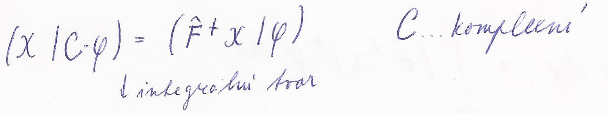 (χ | C·φ) = (F̂⁺ χ | φ)    C... komplexní
↓ integrální tvar